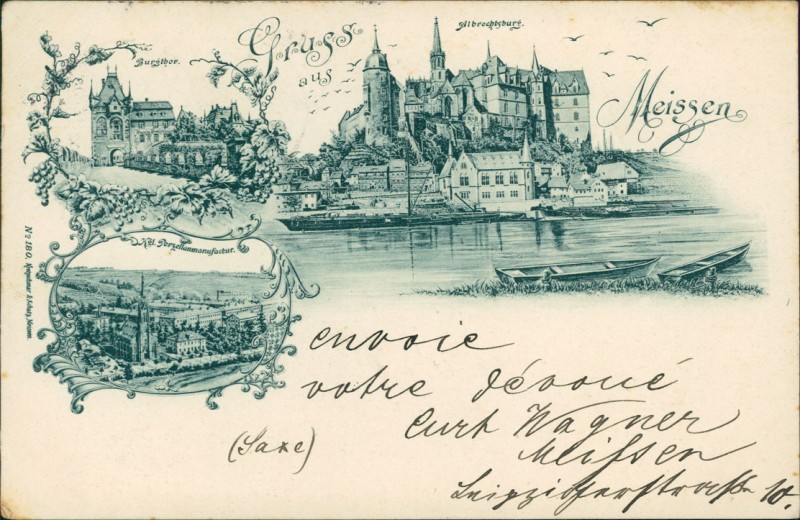 Gruss
aus
Meissen
Albrechtsburg.
Burgthor.
Kgl. Porzellanmanufactur.
No 180.
envoie
votre dévoué
Curt Wagner
(Saxe)
Meissen
Leipzigerstrasse 10.